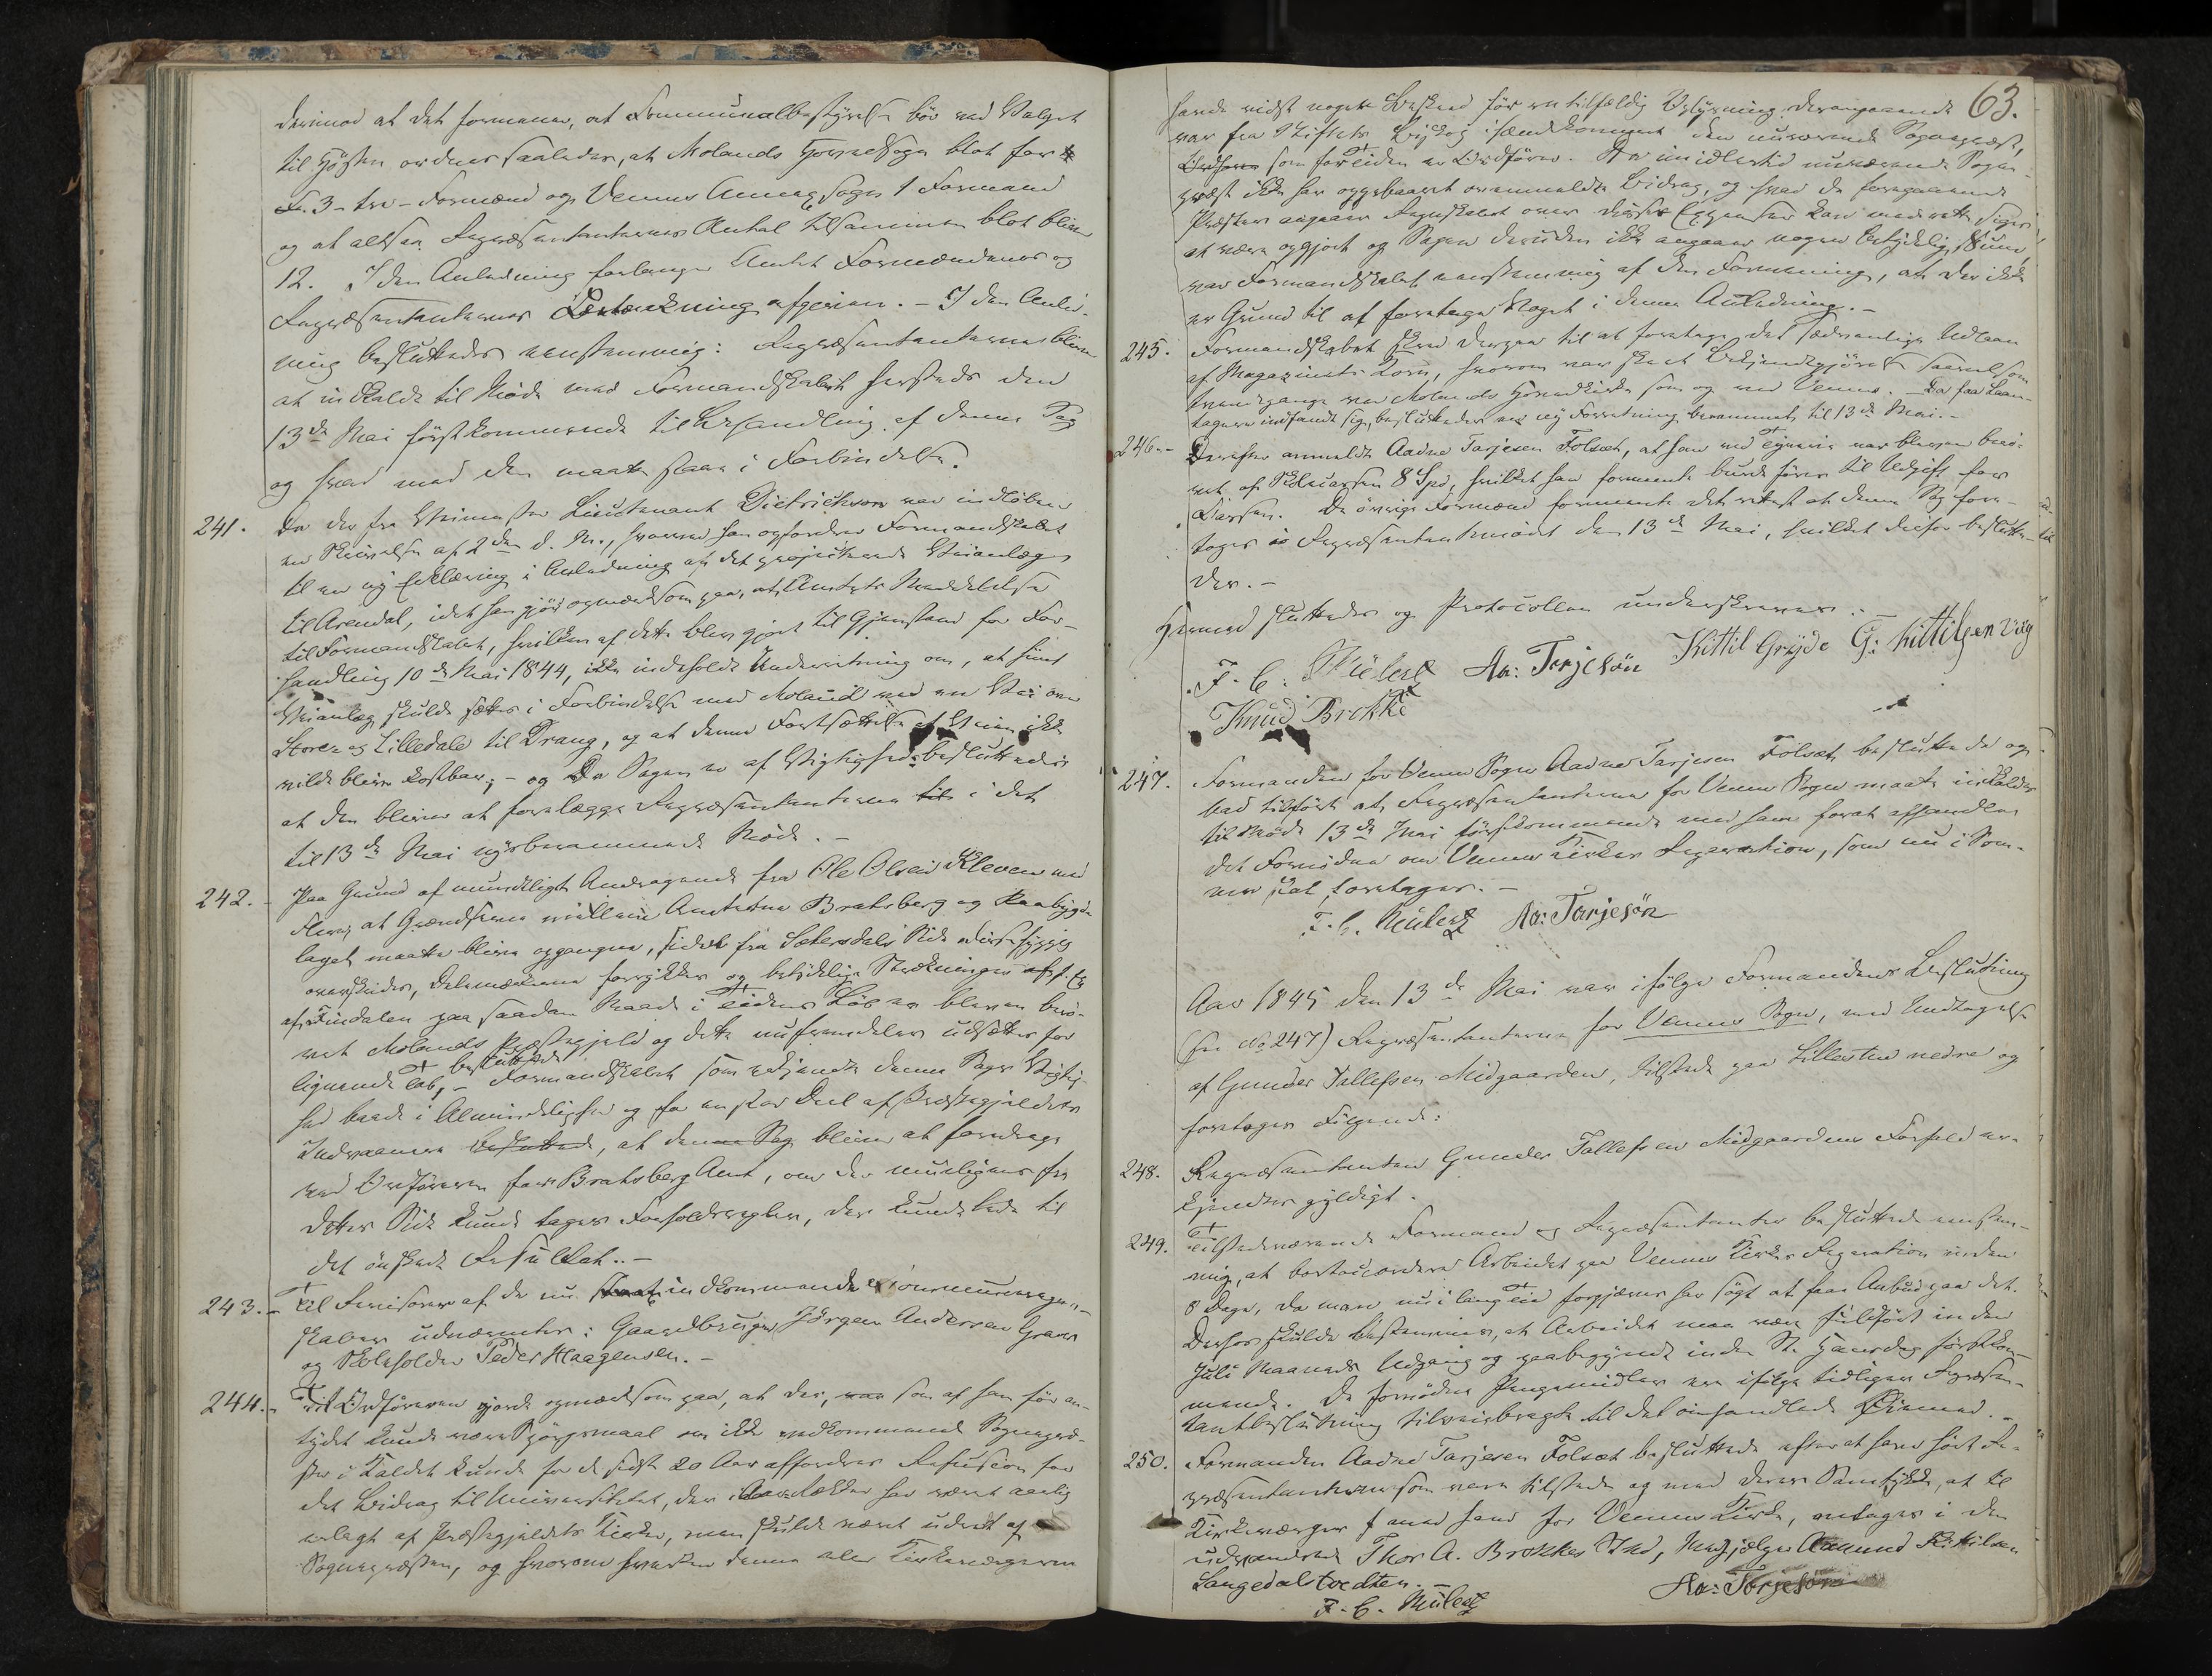 derimod at det formener, at Kommunalbestyrelse bör ved Valget
til Høsten ordnes saaledes, at Molands Hovedsogn blot faar
3 - tre - Formænd og Veums Annexsogn 1 Formand
og at altsaa Repræsentanternes Antal tilsammen blot bliver
12. I den Anledning forlanger Amtet Formændenes og
Repræsentanternes Betænkning afgiven. - I den Anled-
ning besluttedes eenstemmig: Repræsentanterne bliver
at indkalde til Møde med Formandskabet hersteds den
13de Mai førstkommende til Behandling af denne Sag
og hvad med den maatte staae i Forbindelse.
241. Da der fra Lieutenant Dietrichson var indløben
en Skrivelse af 2den d. M., hvorved han opfordrer Formandskabet
til en ny Erklæring i Anledning af det projecterede Veianlæg
til Arendal, idet han gjør opmærksom paa, at Amtets Meddelelse
til Formandskabet, hvilken af dette blev gjort til Gjenstand for For-
handling 10de Mai 1844, ikke indeholdt Underretning om, at hiint
Veianlæg skulde sættes i Forbindelse med Moland ved en Vei over
Store- og Lilledale til Drang, og at denne Fortsættelse af Veien ikke
vilde blive kostbar; - og da Sagen er af Vigtighed: besluttedes
at den bliver at forelægge Repræsentanterne til i det
til 13de Mai nysberammede Møde. -
242. - Paa Grund af mundtligt Andragende fra Ole Olsen Kleven med
Flere, at Grændserne mellem Amterne Bratsberg og Raabygde-
laget maatte blive opgangne, fra Setersdals Side
overskrides, Delemærkerne forrykkes og betydelige Strækninger
af Findalen paa saadan Maade i Tidens Løb er bleven berö-
vet Molands Præstegjeld og dette nu fremdeles udsættes for
lignende Tab, - besluttede Formandskabet som erkjendte denne Sags Vigtig-
hed baade i Almindelighed og for en stor Deel af Præstegjeldets
Indvaanere besluttede, at denne Sag bliver at foredrage
ved Ordføreren for Bratsberg Amt, om der muligens fra
dettes Side kunde tages Forholdsregler, der kunde lede til
det ønskede Resultat. -
243. - Til Revisorer af de nu indkommende Communeregn-
skaber udnævntes: Gaardbruger Jörgen Andersen Graver
og Skoleholder Peder Haagensen. -
244. - Ordføreren gjorde opmærksom paa, at der, som af ham før an-
tydet kunde være Spørgsmaal om ikke vedkommende Sognepræ-
ster i Kaldet kunde for de sidste 20 Aar affordres Refusion for
det Bidrag til Universitetet, der i Aar Rækker har været aarlig
erlagt af Præstegjeldets Kirker, men skulde været udredt af
Sognepræsten, og hvorom hverken denne eller Kirkeværgerne
63.
havde vidst nogen Besked før en tilfældig Oplysning derangaaende
var fra Stiftets Biskop ihændekommet den nuværende Sognepræst,
som for Tiden er Ordfører. Da imidlertid nuværende Sogne-
præst ikke har oppebaaret ovenmeldte Bidrag, og hvad de foregaaende
Præster angaaer Regnskabet over disse Expenser kan med rette siges
at være opgjort og Sagen desuden ikke angaaer nogen betydelig Sum,
var Formandskabet eenstemmig af den Formening, at der ikke
er Grund til at foretage Noget i denne Anledning. -
245. Formandskabet skred derpaa til at foretage det sædvanlige Udlaan
af Magazinets Korn, hvorom var skeet Bekjendtgjörelse saavel som
tvendegange ved Molands Hovedkirke som og ved Veums. - Da faa Laan-
tagere indfandt sig, besluttedes en ny Forretning berammet til 13de Mai. -
246. - Derefter anmeldte Aadne Tarjesen Folsæt, at han ved Tyverie var bleven berö-
vet af Skolecassen 8 Spd, hvilket han formente burde føres til Udgift for
Cassen. De øvrige Formænd formente det rettest at denne Sag fore-
toges i Repræsentantmødet den 13de Mai, hvilket derfor beslutte-
des. -
Hermed sluttedes og Protocollen underskreves: -
F. C. Mülertz Aa: Tarjesön Kittil Gröyde G: Kittilsen Vaag
Knud Brokke
247. Formanden for Veum Sogn Aadne Tarjesen Folsæt besluttede og
bad tilført at Repræsentanterne for Veum Sogn maatte indkaldes
til Møde 13de Mai førstkommende med ham forat afhandle
det Fornødne om Veums Kirkes Reparation, som nu i Som-
mer skal foretages. -
F. C. Mülertz Aa: Tarjesön
Aar 1845 den 13de Mai var ifølge Formandens Beslutning
(see No 247) Repræsentanterne for Veums Sogn, med Undtagelse
af Gunder Tallefsen Midgaarden, tilstede paa Lillestue nedre og
foretoges Følgende:
248. Repræsentanten Gunder Tallefsen Midgaardens Forfald er-
kjendtes gyldigt.
249. Tilstedeværende Formand og Repræsentanter besluttede eenstem-
mig, at bortaccordere Arbeidet paa Veums Kirkes Reparation inden
8 Dage, da man nu i lang Tid forgjæves har søgt at faae Anbud paa det.
Derfor skulde bestemmes, at Arbeidet maa være fuldført inden
Juli Maaneds Udgang og paabegyndt inden St. Hansdag førstkom-
mende. De fornødne Pengemidler ere ifølge tidligere Repræsen-
tantbeslutning tilveiebragte til det omhandlede Øiemed. -
250. Formanden Aadne Tarjesen Folsæt besluttede efterat have hørt Re-
præsentanterne som vare tilstede og med deres Samtykke, at til
Kirkeværger med ham for Veums Kirke, antages i den
udvandrede Thor A. Brokkes Sted, Medhjælper Aamund Kittilsen
Langedalstvedten. -
F. C. Mülertz Aa: Tarjesön